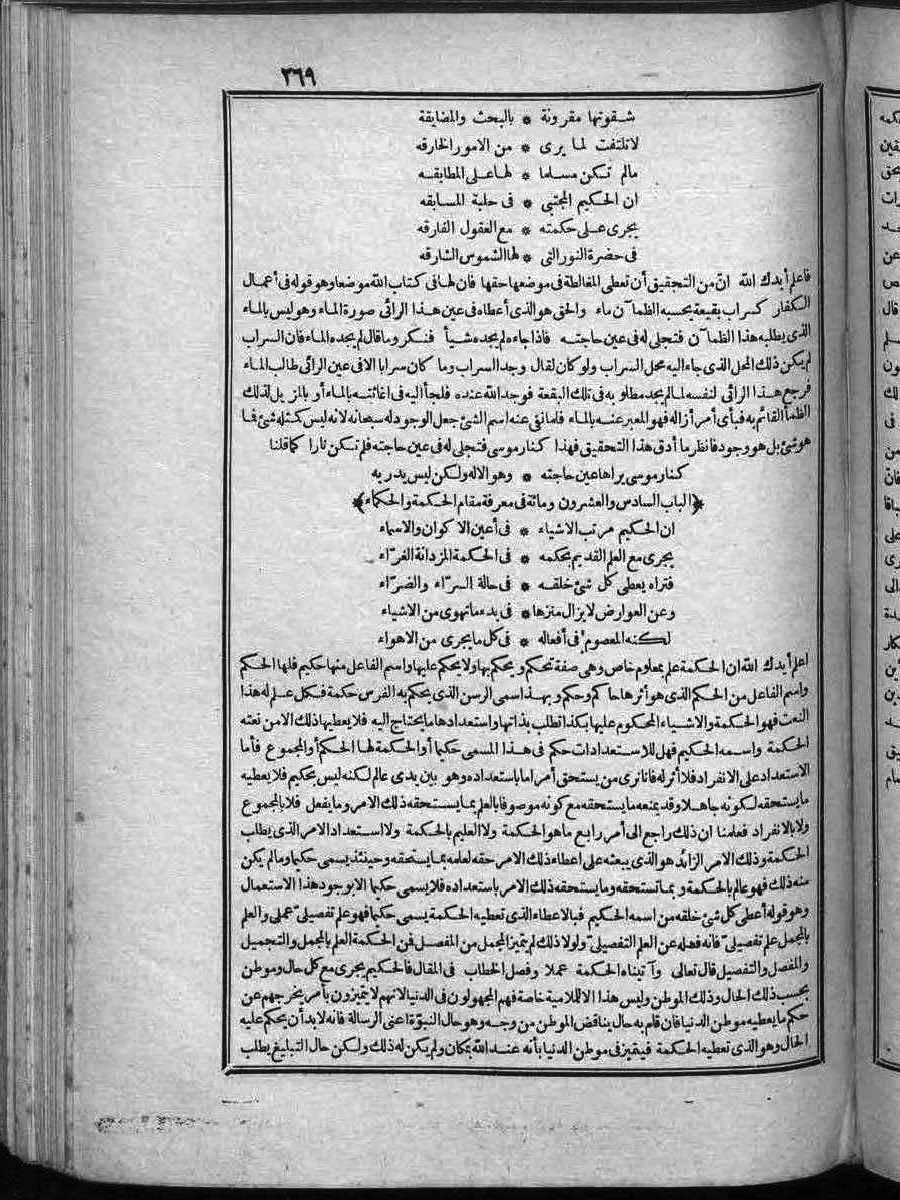 ٣٦٩
شقوتها مقرونة * بالبحث والمضايقة
لا تلتفت لما يرى * من الامور الخارقه
مالم تكن مسلما * لها على المطابقه
ان الحكيم المجتبى * فى حلبة المسابقه
يجرى على حكمته * مع العقول الفارقه
فى حضرة النور التى * لها الشموس الشارقه
فاعلم أيدك الله انّ من التحقيق أن تعطى المغالطة فى موضعها حقها فان لها فى كتاب الله موضعا وهو قوله فى أعمال
الكفار كسراب بقيعة يحسبه الظمآن ماء والحق هو الذى أعطاه فى عين هذا الرائى صورة الماء وهو ليس بالماء
الذى يطلبه هذا الظمآن فتجلى له فى عين حاجته فاذا جاءه لم يجده شيأ فنكر وما قال لم يجده الماء فان السراب
لم يكن ذلك المحل الذى جاء اليه محل السراب ولو كان لقال وجد السراب وما كان سرابا الا فى عين الرائى طالب الماء
فرجع هذا الرائى لنفسه لما لم يجد مطلوبه فى تلك البقعة فوجد الله عنده فلجأ اليه فى اغاثته بالماء أو بالمزيل لذلك
الظمأ القائم به فبأى أمر أزاله فهو المعبر عنه بالماء فلما نفى عنه اسم الشئ جعل الوجود له سبحانه لانه ليس كمثله شئ فما
هو شئ بل هو وجود فانظر ما أدق هذا التحقيق فهذا كنار موسى فتجلى له فى عين حاجته فلم تكن نارا كما قلنا
كنار موسى يراها عين حاجته * وهو الاله ولكن ليس يدريه
﴿الباب السادس والعشرون ومائة فى معرفة مقام الحكمة والحكماء﴾
ان الحكيم مرتب الاشياء * فى أعين الاكوان والاسماء
يجرى مع العلم القديم بحكمه * فى الحكمة المزدانة الغرّاء
فتراه يعطى كل شئ خلقه * فى حالة السرّاء والضرّاء
وعن العوارض لا يزال منزها * فى بدء ما تهوى من الاشياء
لكنه المعصوم فى أفعاله * فى كل ما يجرى من الاهواء
اعلم أيدك الله ان الحكمة علم بمعلوم خاص وهى صفة تحكم ويحكم بها ولا يحكم عليها واسم الفاعل منها حكيم فلها الحكم
واسم الفاعل من الحكم الذى هو أثرها حاكم وحكم وبهذا سمى الرسن الذى يحكم به الفرس حكمة فكل علم له هذا
النعت فهو الحكمة والاشياء المحكوم عليها بكذا تطلب بذاتها واستعدادها ما يحتاج اليه فلا يعطيها ذلك الا من نعته
الحكمة واسمه الحكيم فهل للاستعدادات حكم فى هذا المسمى حكيما أو الحكمة لها الحكم أو المجموع فأما
الاستعداد على الانفراد فلا أثر له فانا نرى من يستحق أمرا ما باستعداده وهو بين يدى عالم لكنه ليس بحكيم فلا يعطيه
ما يستحقه لكونه جاهلا وقد يمنعه ما يستحقه مع كونه موصوفا بالعلم بما يستحقه ذلك الامر وما يفعل فلا بالمجموع
ولا بالانفراد فعلمنا ان ذلك راجع الى أمر رابع ما هو الحكمة ولا العليم بالحكمة ولا استعداد الامر الذى يطلب
الحكمة وذلك الامر الزائد هو الذى يبعثه على اعطاء ذلك الامر حقه لعلمه بما يستحقه وحينئذ يسمى حكيما وما لم يكن
منه ذلك فهو عالم بالحكمة وبما تستحقه وما يستحقه ذلك الامر باستعداده فلا يسمى حكيما الا بوجود هذا الاستعمال
وهو قوله أعطى كل شئ خلقه من اسمه الحكيم فبالاعطاء الذى تعطيه الحكمة يسمى حكيما فهو علم تفصيلىّ عملى والعلم
بالمجمل علم تفصيلىّ فانه فصله عن العلم التفصيلىّ ولولا ذلك لم يتميز المجمل من المفصل فن الحكمة العلم بالمجمل والتجميل
والمفصل والتفصيل قال تعالى وآتيناه الحكمة عملا وفصل الخطاب فى المقال فالحكيم يجرى مع كل حال وموطن
بحسب ذلك الحال وذلك الموطن وليس هذا الا للملامية خاصة فهم المجهولون فى الدنيا لانهم لا يتميزون بأمر يخرجهم عن
حكم ما يعطيه موطن الدنيا فان قام به حال يناقض الموطن من وجه وهو حال النبوّة أعنى الرسالة فانه لا بد أن يحكم عليه
الحال وهو الذى تعطيه الحكمة فيتميز فى موطن الدنيا بأنه عند الله بمكان ولم يكن له ذلك ولكن حال التبليغ يطلب